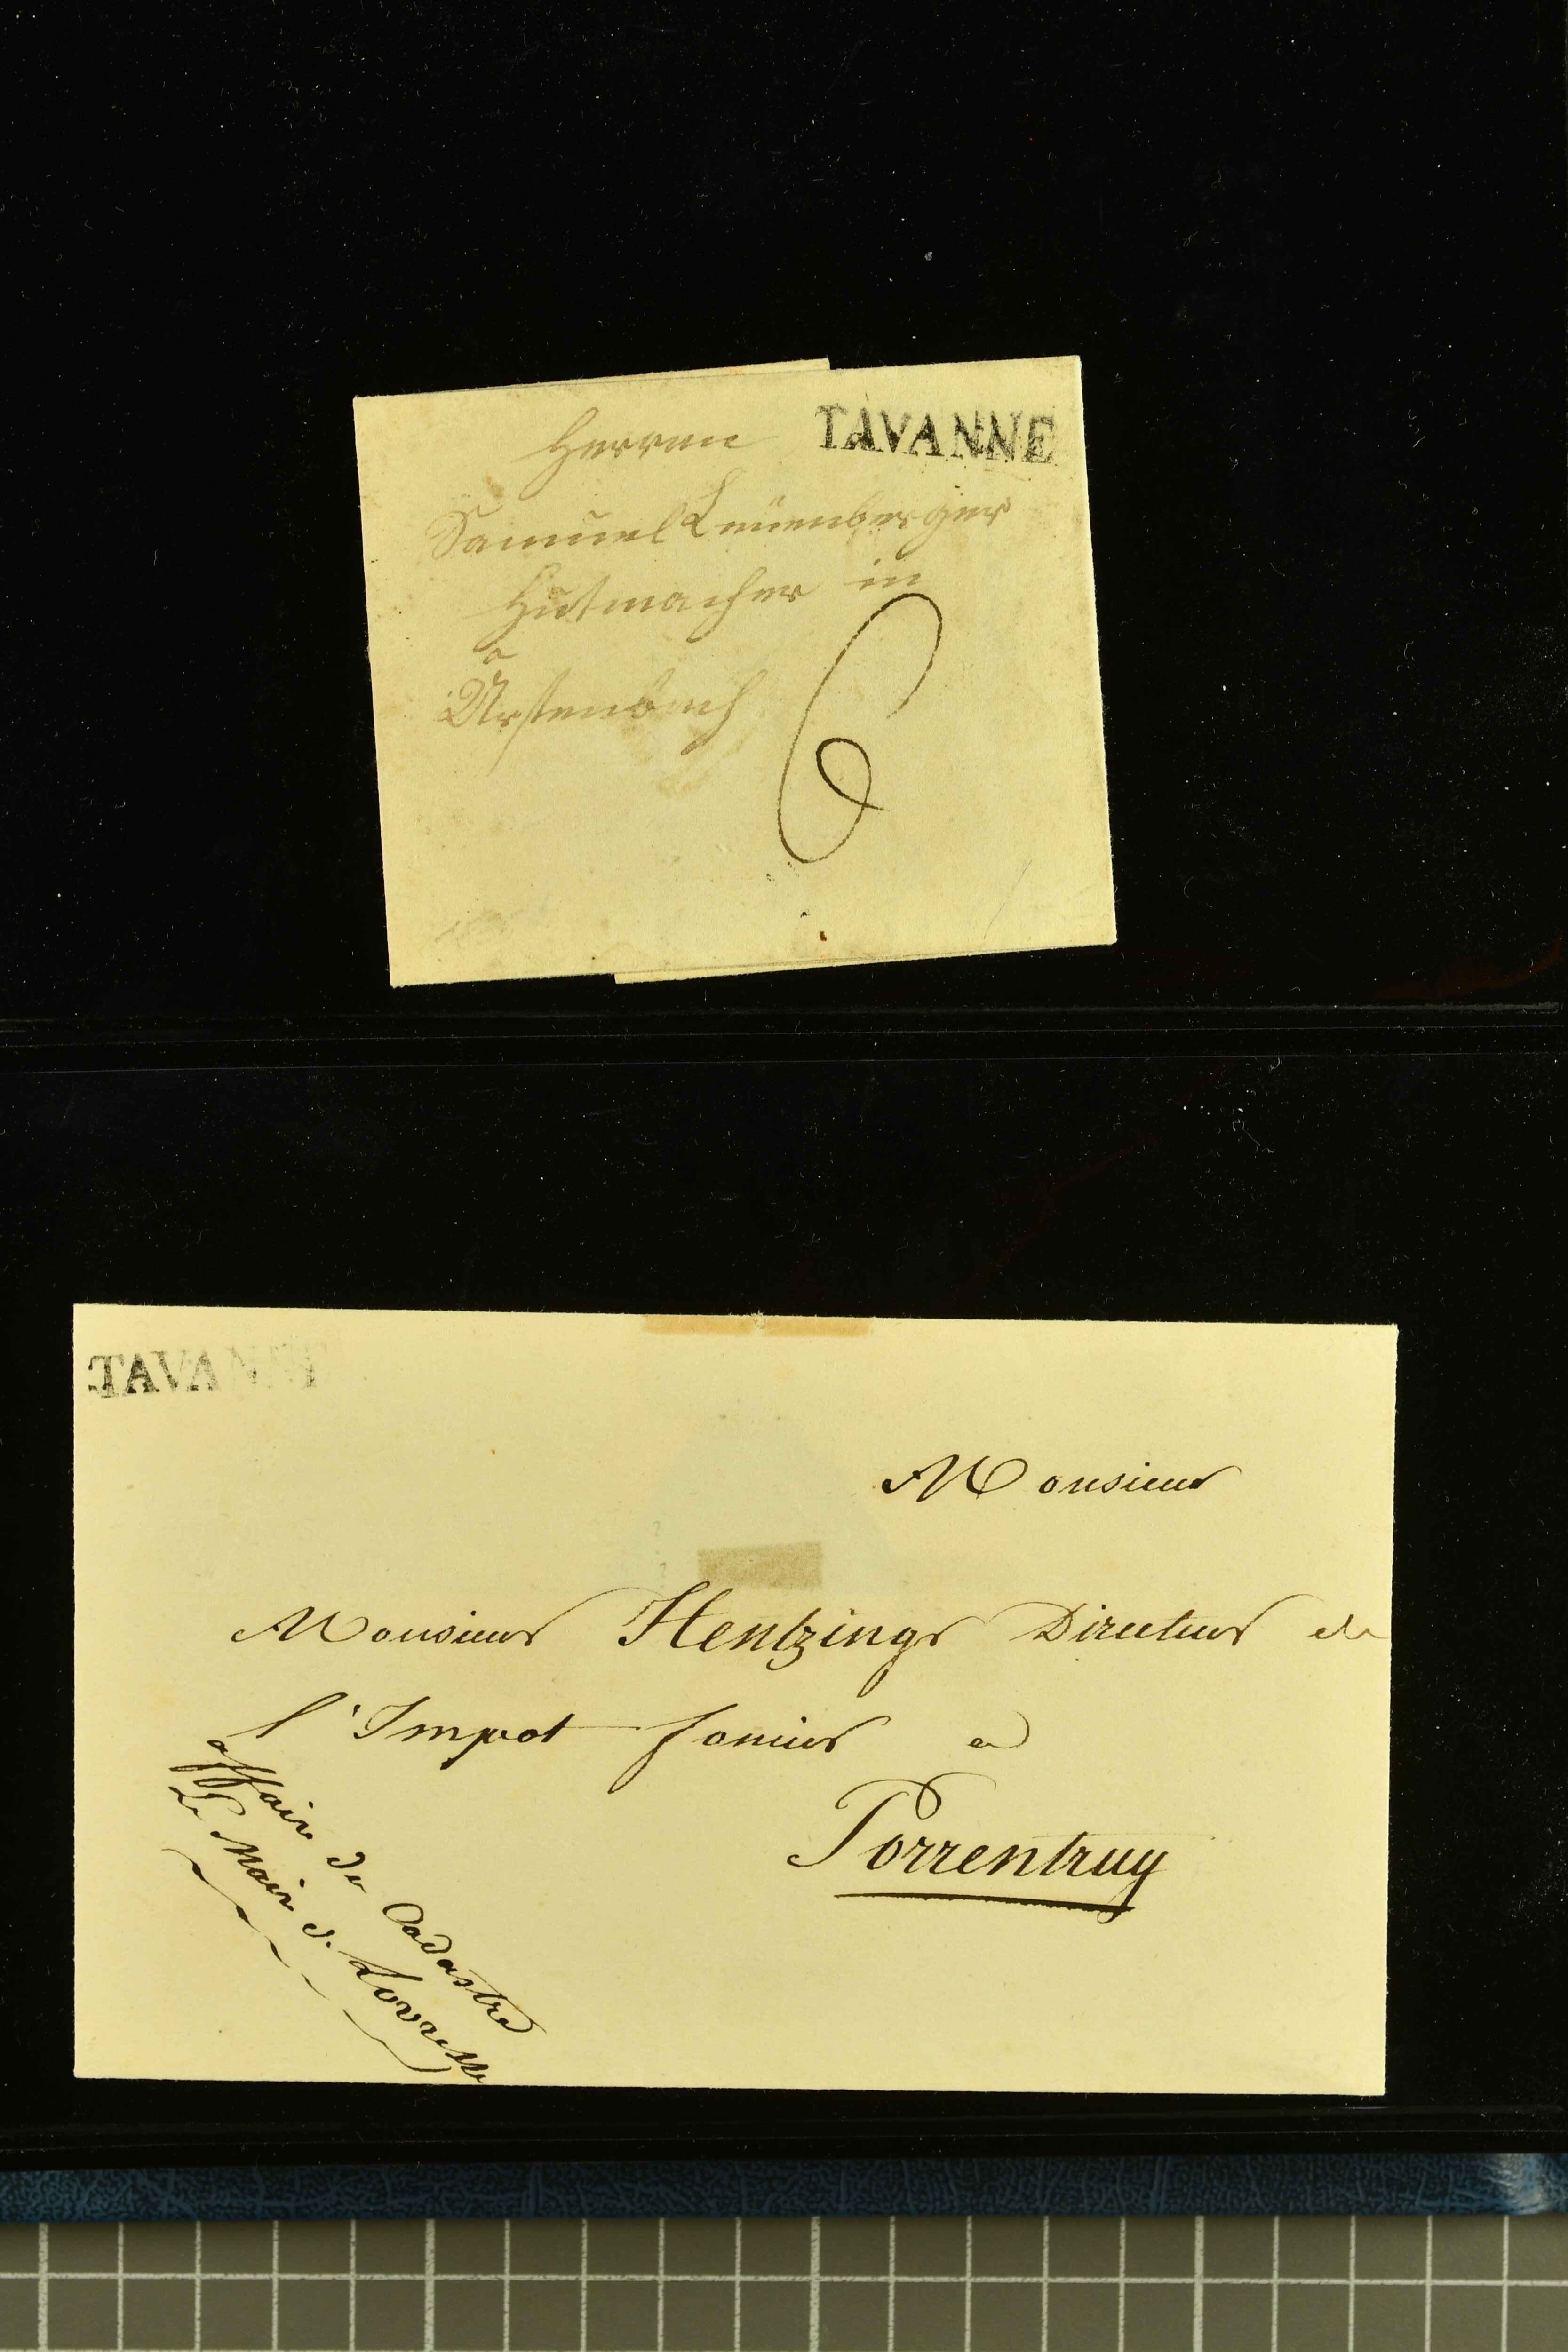 TAVANNE
Herren
Samuel Leüenberger
Hutmacher in
a
Ürstenbach
6
TAVANNE
Monsieur
Monsieur Hentzingr Directeur de
l'Impot foncier a
Porrentruy
affaire de Cadastre
Le Maire de Loveresse